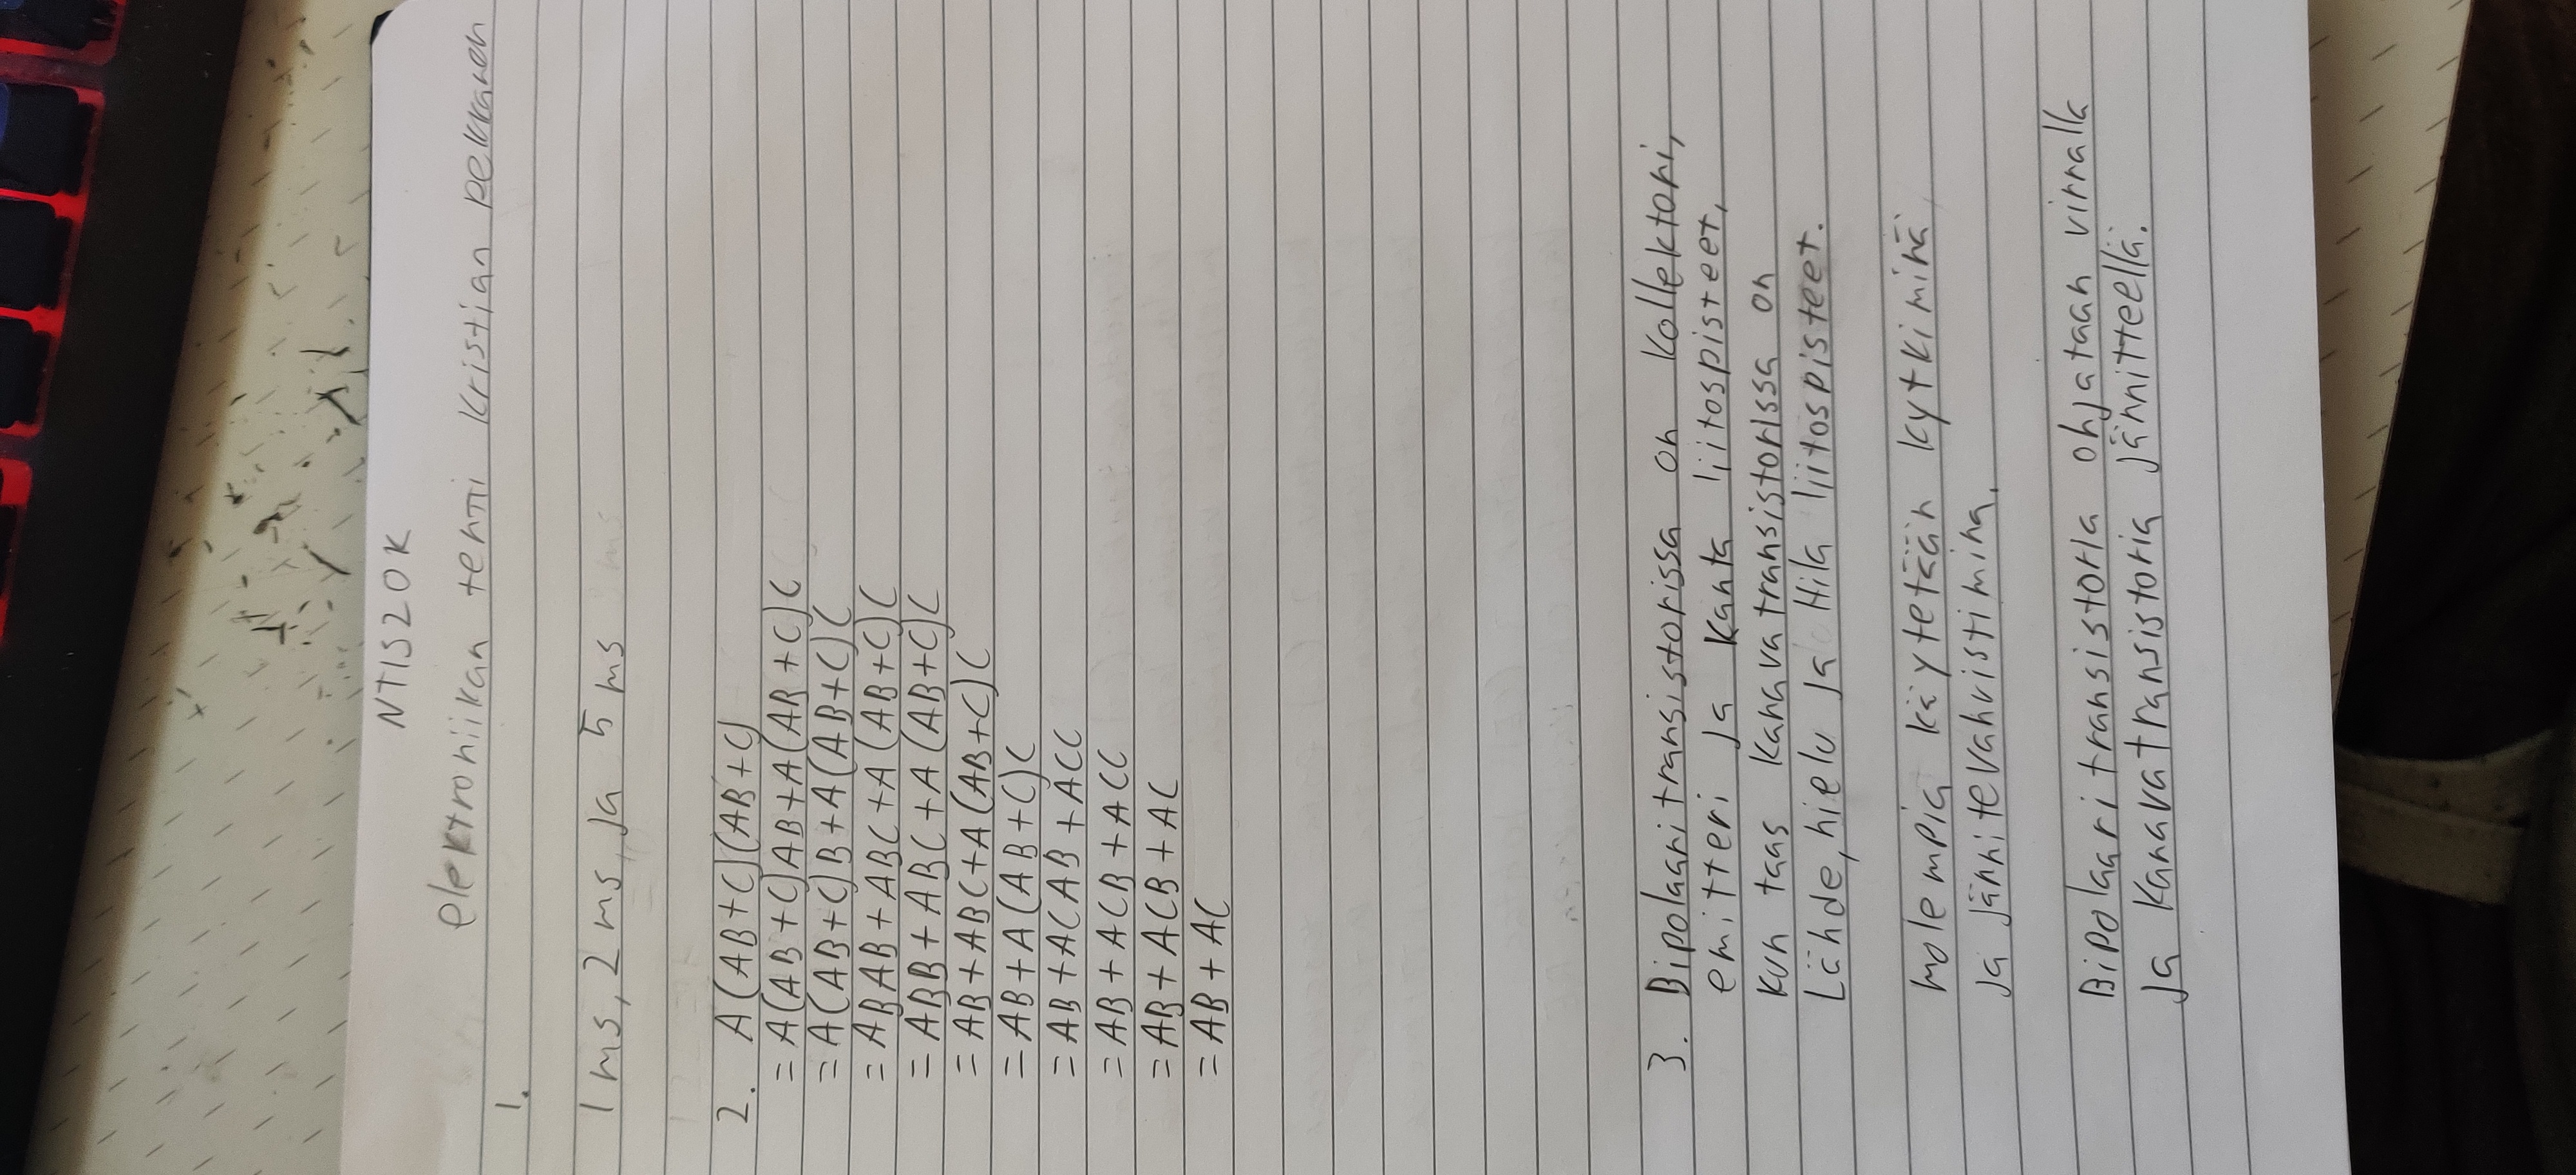 NTIS20K
elektroniikan tentti Kristian pekkanen
1.
1 ms, 2 ms, ja 5 ms
2. A(AB+C)(AB+C)
= A(AB+C)AB+A(AB+C)C
= A(AB+C)B+A(AB+C)C
= ABAB+ABC+A(AB+C)C
= ABB+ABC+A(AB+C)C
= AB+ABC+A(AB+C)C
= AB+A(AB+C)C
= AB+ACAB+ACC
= AB+ACB+ACC
= AB+ACB+AC
= AB+AC
3. Bipolaaritransistorissa on kollektori,
emitteri ja kanta liitospisteet,
kun taas kanavatransistorissa on
Lähde, nielu ja Hila liitospisteet.
molempia käytetään kytkiminä
ja jännitevahvistimina.
Bipolaaritransistoria ohjataan virralla
ja kanavatransistoria jännitteellä.